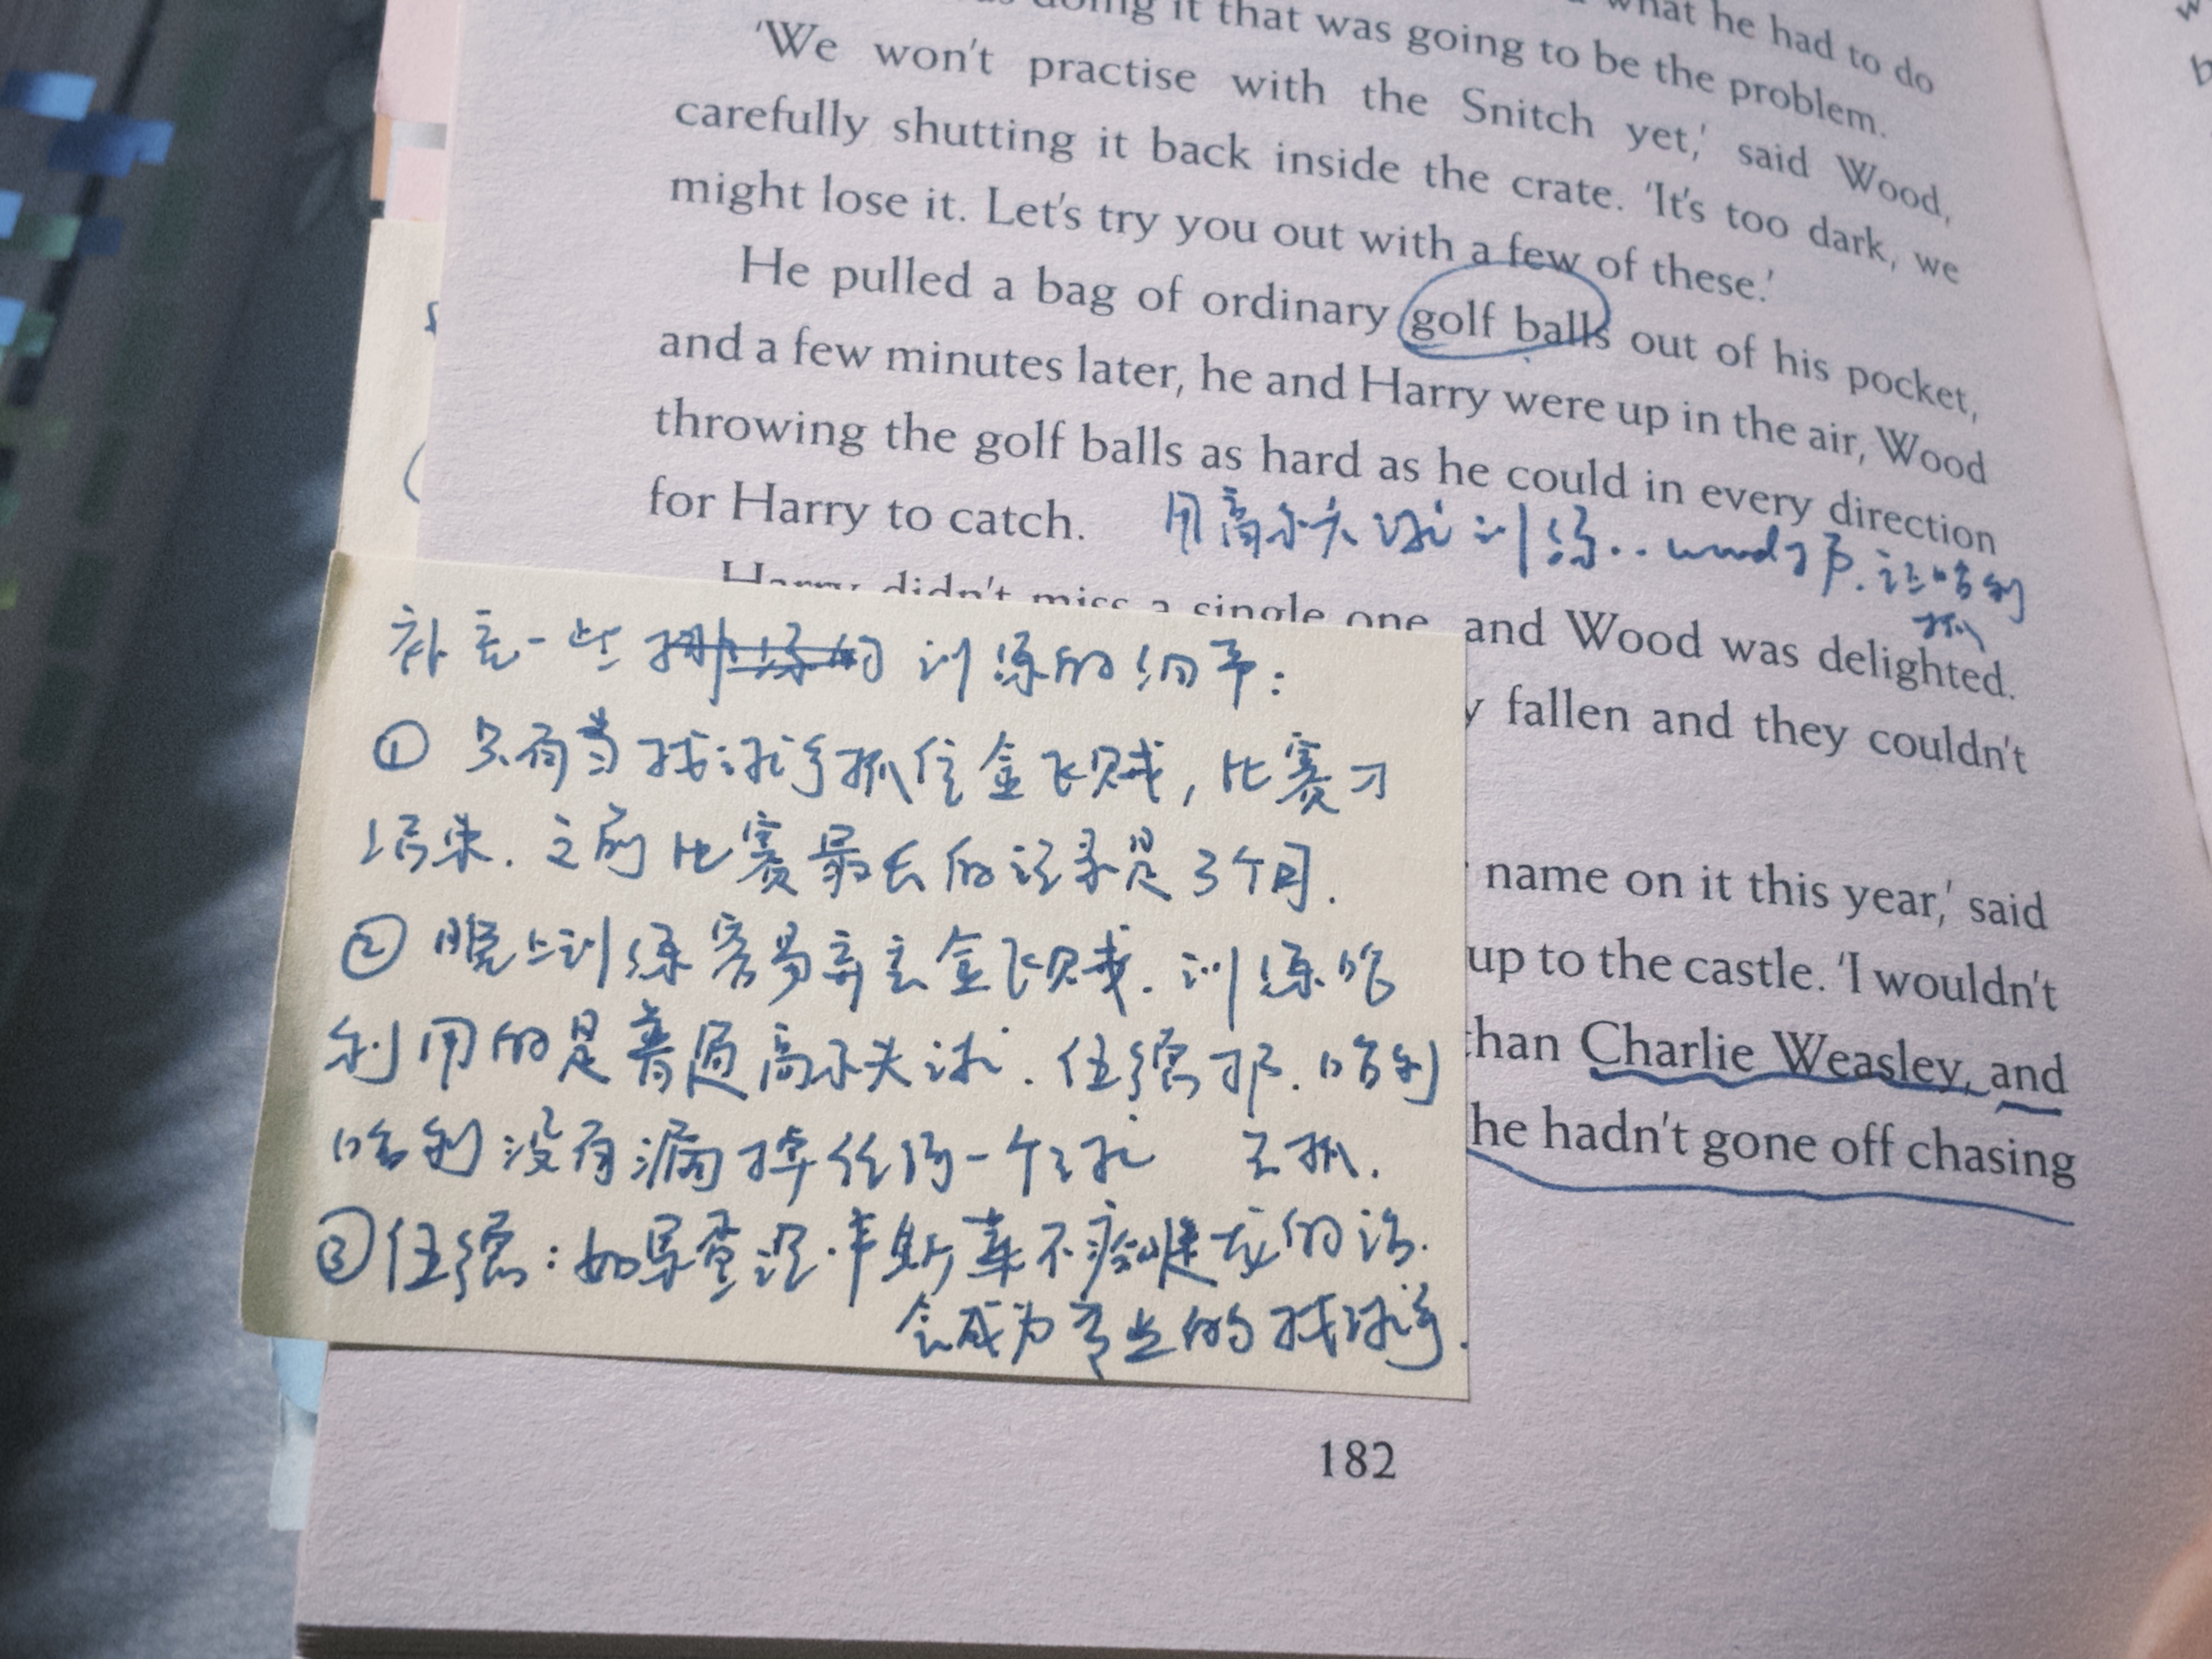 doing it that was going to be the problem.
what he had to do
'We won't practise with the Snitch yet,' said Wood,
carefully shutting it back inside the crate. 'It's too dark, we
might lose it. Let's try you out with a few of these.'
He pulled a bag of ordinary golf balls out of his pocket,
and a few minutes later, he and Harry were up in the air, Wood
throwing the golf balls as hard as he could in every direction
for Harry to catch.
用高尔夫球训练..wood扔.让哈利
抓
Harry didn't miss a single one, and Wood was delighted.
fallen and they couldn't
name on it this year,' said
up to the castle. 'I wouldn't
than Charlie Weasley, and
he hadn't gone off chasing
补充一些 训练的细节:
① 只有当找球手抓住金飞贼,比赛才
结束.之前比赛最长的记录是3个月.
② 晚上训练容易弄丢金飞贼.训练哈
利用的是普通高尔夫球.伍德扔.哈利
哈利没有漏掉任何一个球 去抓.
③ 伍德:如果查理·韦斯莱不去追龙的话.
会成为专业的找球手.
182